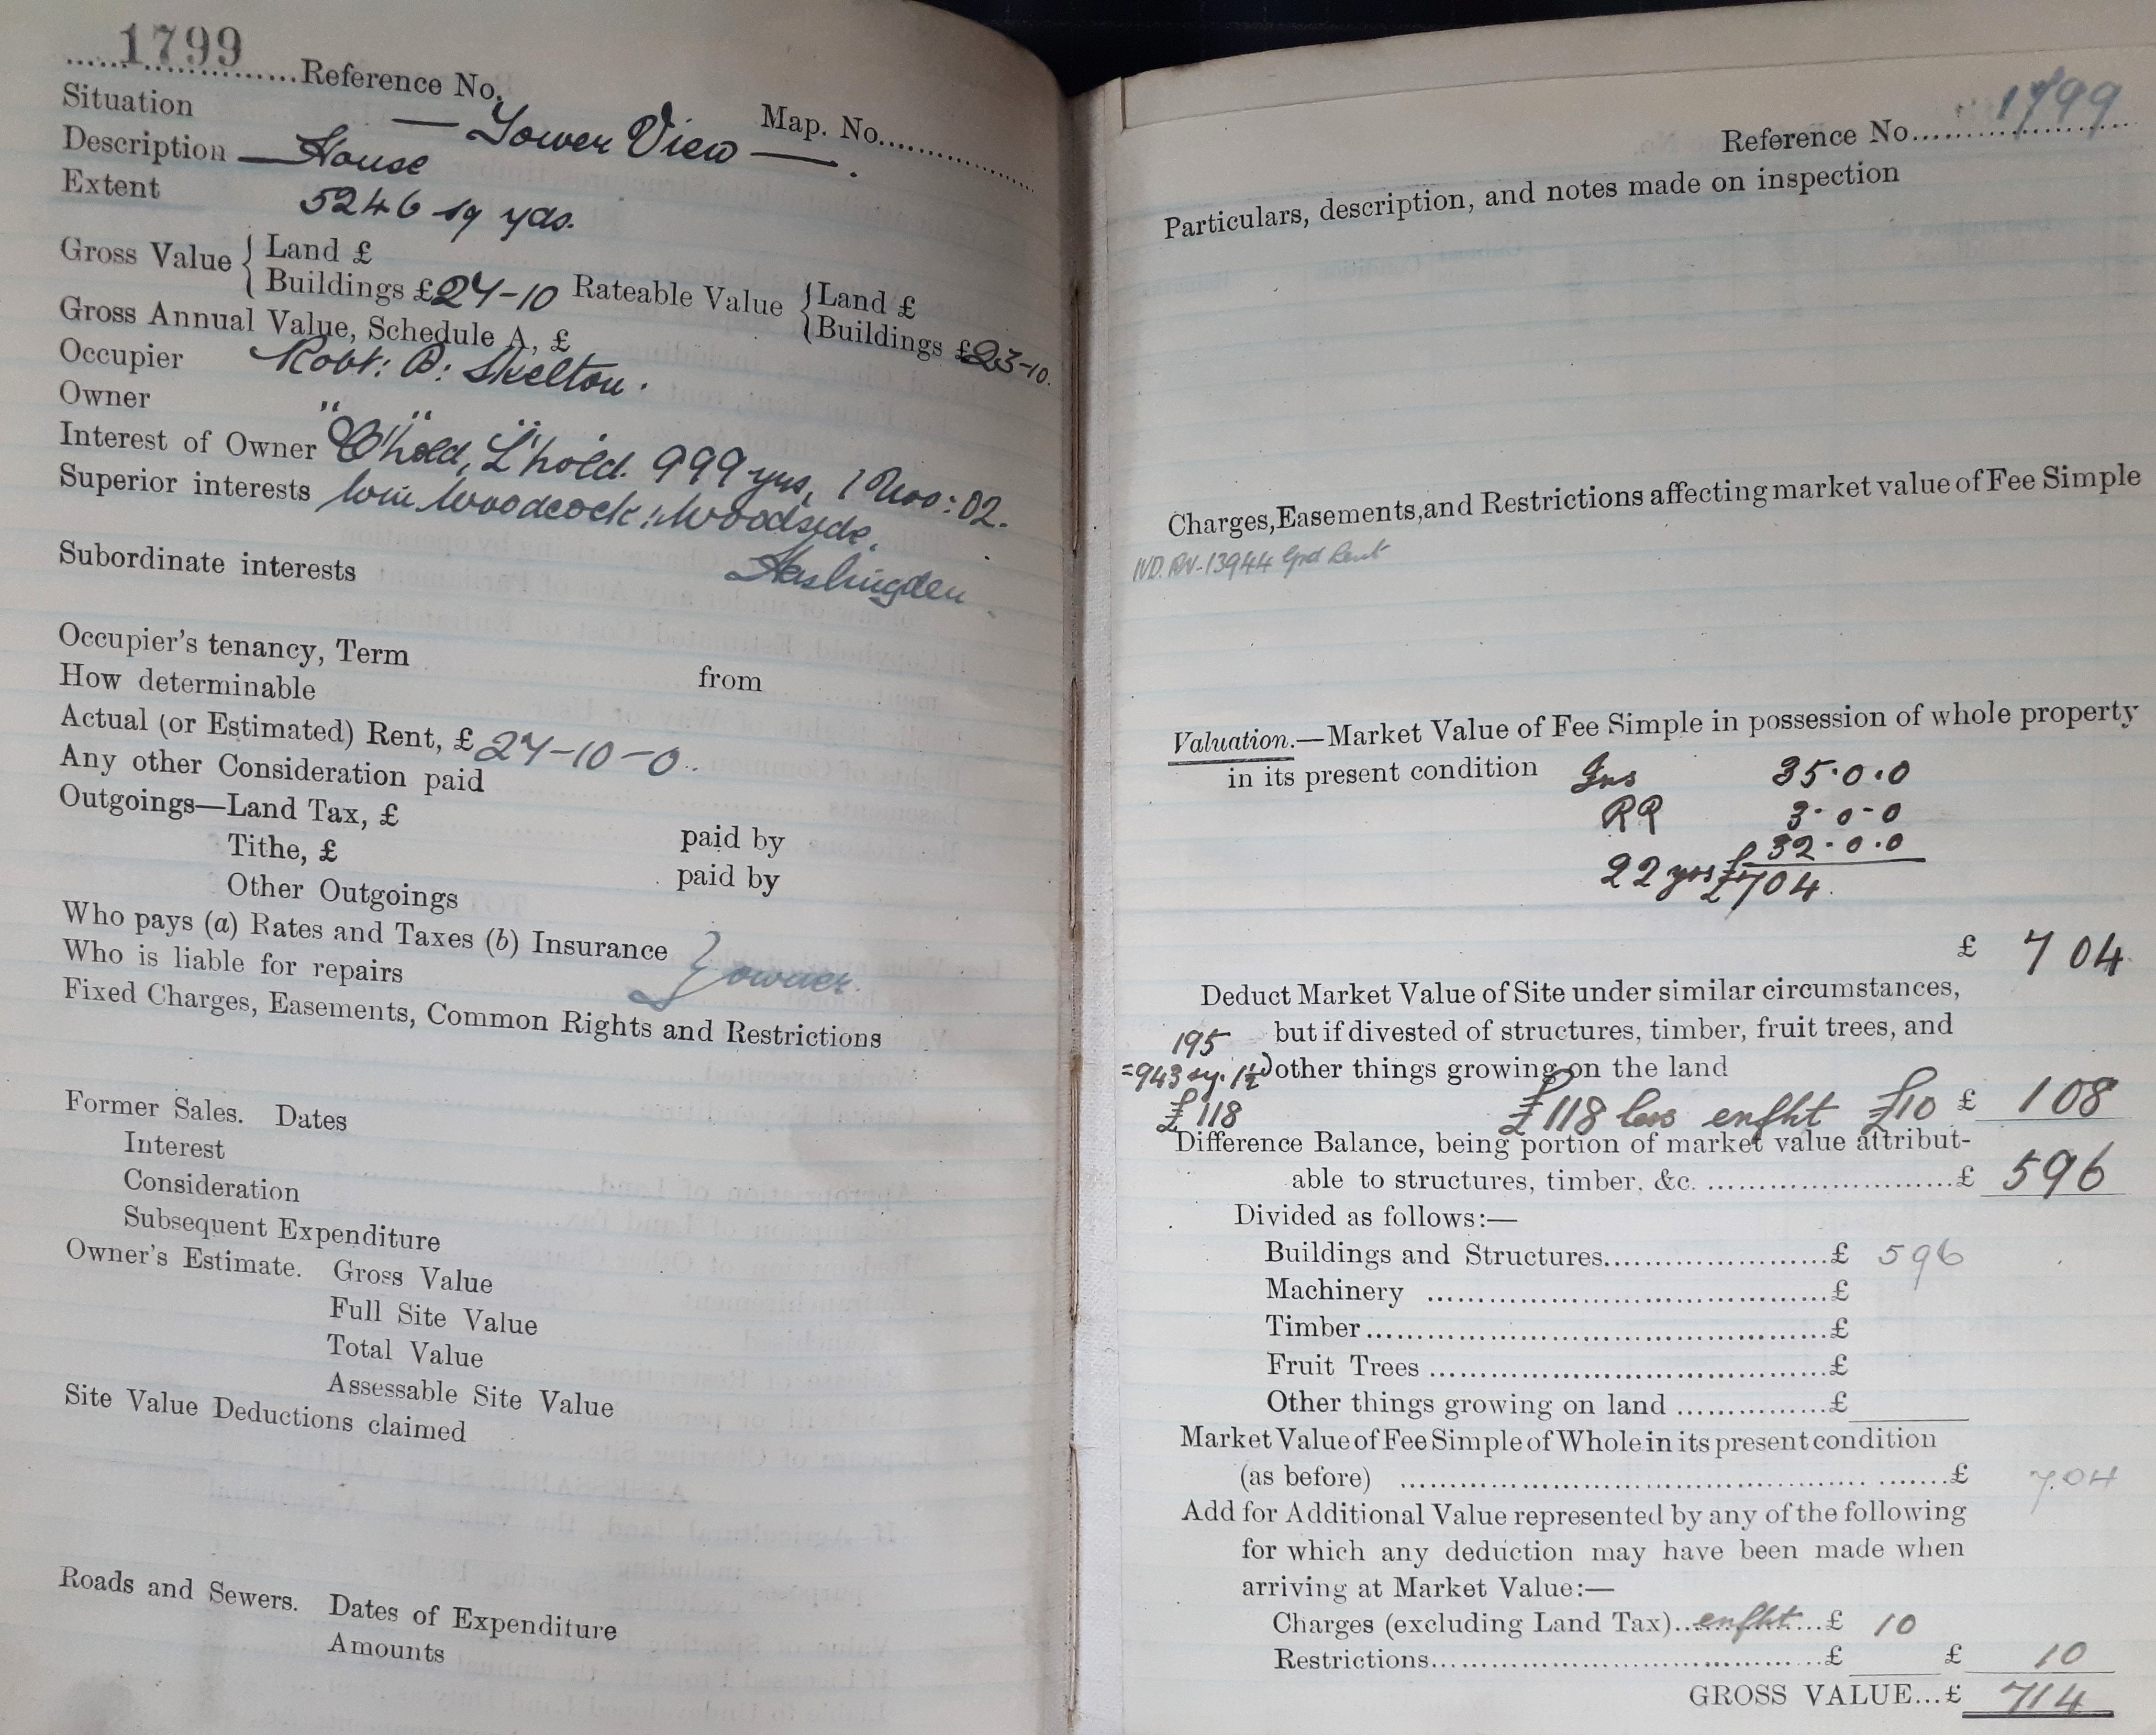 1799 Reference No. Map. No.
Situation — Tower View —.
Description — House
Extent 5246 sq yds.
Gross Value { Land £
Buildings £27-10 Rateable Value { Land £
Buildings £23-10.
Gross Annual Value, Schedule A, £
Occupier Robt: B: Skelton.
Owner " " " "
Interest of Owner C'hold, L'hold. 999 yrs, 1 Nov: 02.
Superior interests Wm Woodcock, Woodside,
Haslingden.
Subordinate interests
Occupier's tenancy, Term from
How determinable
Actual (or Estimated) Rent, £ 27-10-0..
Any other Consideration paid
Outgoings—Land Tax, £ paid by
Tithe, £ paid by
Other Outgoings
Who pays (a) Rates and Taxes (b) Insurance } owner.
Who is liable for repairs
Fixed Charges, Easements, Common Rights and Restrictions
Former Sales. Dates
Interest
Consideration
Subsequent Expenditure
Owner's Estimate. Gross Value
Full Site Value
Total Value
Assessable Site Value
Site Value Deductions claimed
Roads and Sewers. Dates of Expenditure
Amounts
Reference No. 1799
Particulars, description, and notes made on inspection
Charges, Easements, and Restrictions affecting market value of Fee Simple
13944 Grd Rent
Valuation.—Market Value of Fee Simple in possession of whole property
in its present condition Grs 35.0.0
RR 3-0-0
£32.0.0
22 yrs £704.
£ 704
Deduct Market Value of Site under similar circumstances,
195 but if divested of structures, timber, fruit trees, and
=943 sy. 1½) other things growing on the land
£118 £118 less enfht £10 £ 108
Difference Balance, being portion of market value attribut-
able to structures, timber, &c. £ 596
Divided as follows:—
Buildings and Structures £ 596
Machinery £
Timber £
Fruit Trees £
Other things growing on land £
Market Value of Fee Simple of Whole in its present condition
(as before) £ 704
Add for Additional Value represented by any of the following
for which any deduction may have been made when
arriving at Market Value:—
Charges (excluding Land Tax) enfht £ 10
Restrictions £ £ 10
GROSS VALUE...£ 714